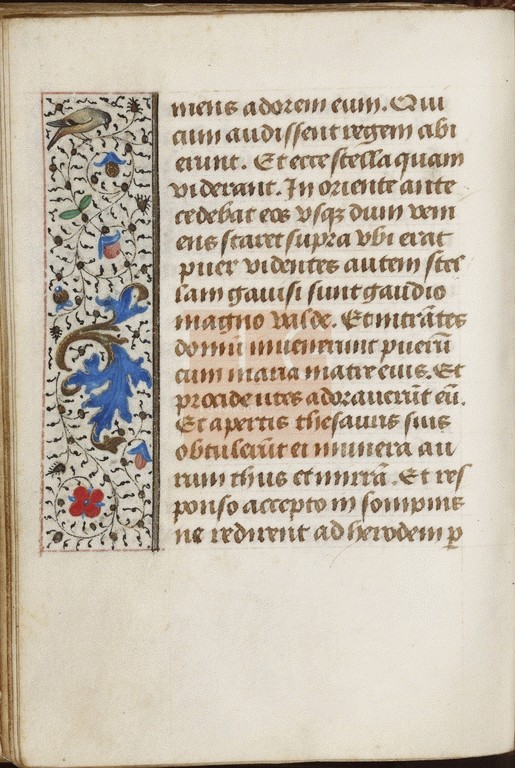 niens adorem eum. Qui
cum audissent regem abi
erunt. Et ecce stella quam
viderant. In oriente ante
cedebat eos vsqꝫ dum veni
ens staret supra vbi erat
puer videntes autem stel
lam gauisi sunt gaudio
magno valde. Et intrātes
domū inuenerunt puerū
cum maria matre eius. Et
procidentes adorauerūt eū.
Et apertis thesauris suis
obtulerūt ei munera au
rum thus et mirrā. Et res
ponso accepto in sompnis
ne redirent ad herodem ꝑ